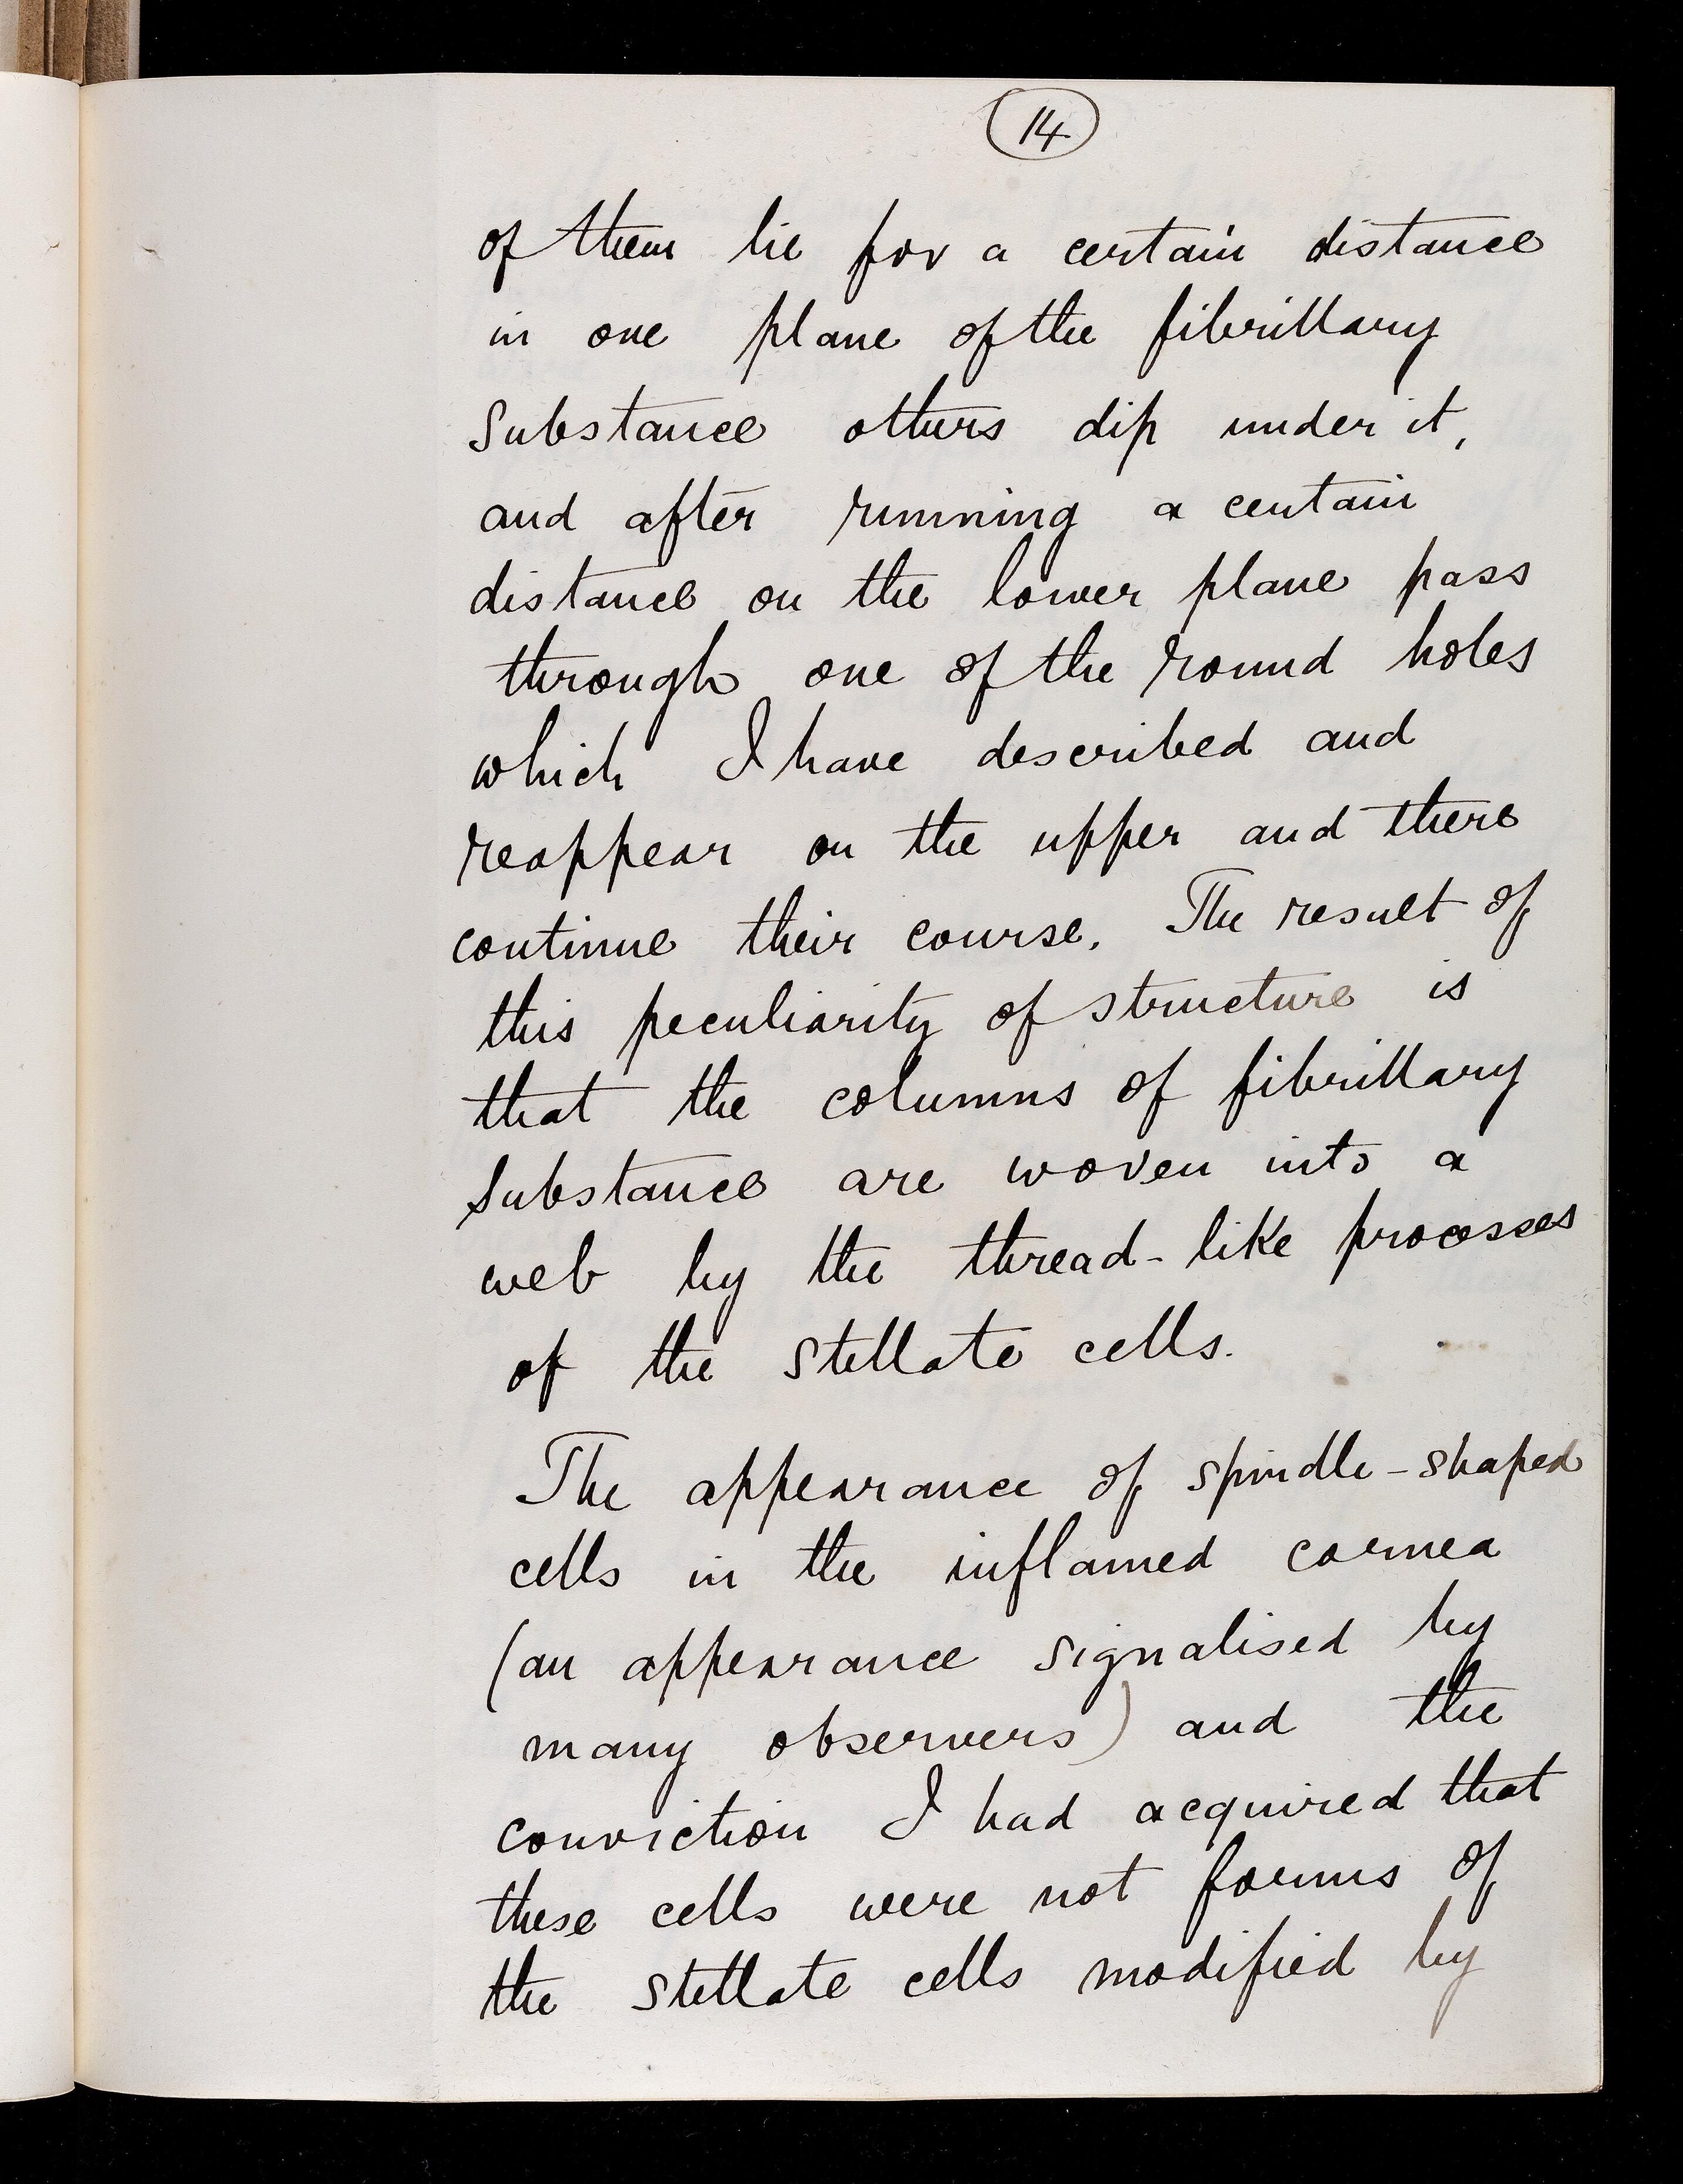 14
of them lie for a certain distance
in one plane of the fibrillary
substance others dip under it,
and after running a certain
distance on the lower plane pass
through one of the round holes
which I have described and
reappear on the upper and there
continue their course. The result of
this peculiarity of structure is
that the columns of fibrillary
substance are woven into a
web by the thread-like processes
of the stellate cells.
The appearance of spindle-shaped
cells in the inflamed cornea
(an appearance signalised by
many observers) and the
conviction I had acquired that
these cells were not forms of
the stellate cells modified by